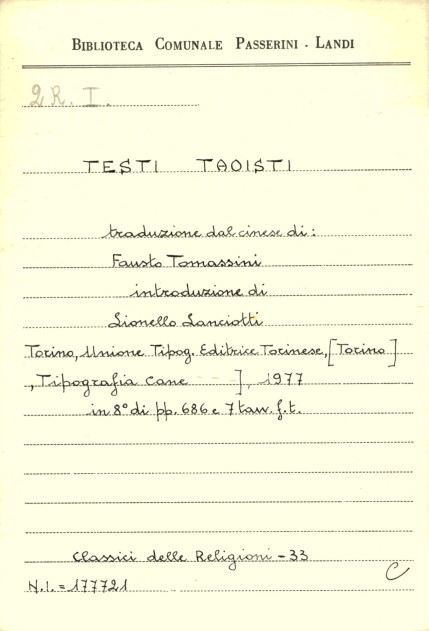 BIBLIOTECA COMUNALE PASSERINI - LANDI
2 R. I.
TESTI TAOISTI
traduzione dal cinese di:
Fausto Tomassini
introduzione di
Lionello Lanciotti
Torino, Unione Tipog. Editrice Torinese, [Torino]
, Tipografia Cane ], 1977
in 8° di pp. 686 e 7 tav. f.t.
Classici delle Religioni - 33
N.I. = 177721
C